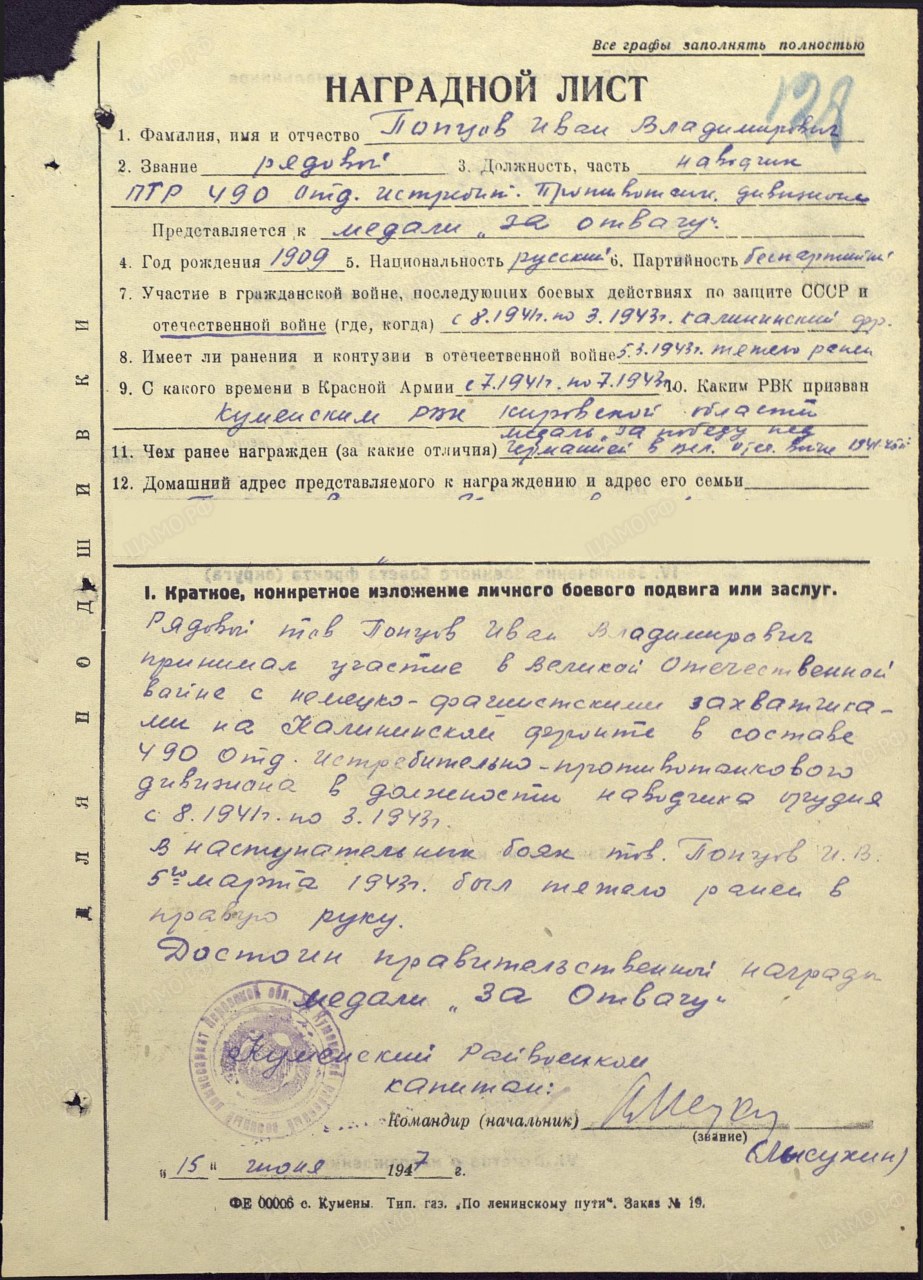 Все графы заполнять полностью
128
НАГРАДНОЙ ЛИСТ
1. Фамилия, имя и отчество Попцов Иван Владимирович
2. Звание рядовой 3. Должность, часть наводчик
ПТР 490 Отд. истребит. Противотанк. дивизиона
Представляется к медали „За отвагу“
4. Год рождения 1909 5. Национальность русский 6. Партийность беспартийный
7. Участие в гражданской войне, последующих боевых действиях по защите СССР и
отечественной войне (где, когда) с 8.1941г. по 3.1943г. Калининский фр.
8. Имеет ли ранения и контузии в отечественной войне 5.3.1943г. тяжело ранен
9. С какого времени в Красной Армии с 7.1941г. по 7.1943г. 10. Каким РВК призван
Куменским РВК Кировской области
медаль „За победу над
11. Чем ранее награжден (за какие отличия) Германией в вел. отеч. войне 1941-45г.
12. Домашний адрес представляемого к награждению и адрес его семьи
I. Краткое, конкретное изложение личного боевого подвига или заслуг.
Рядовой тов Попцов Иван Владимирович
принимал участие в Великой Отечественной
войне с немецко-фашистскими захватчика-
ми на Калининской фронте в составе
490 Отд. истребительно-противотанкового
дивизиона в должности наводчика орудия
с 8.1941г. по 3.1943г.
В наступательных боях тов. Попцов И.В.
5го марта 1943г. был тяжело ранен в
правую руку.
Достоин правительственной награды
медали „За Отвагу“
Куменский Райвоенком
капитан:
Командир (начальник)
(звание)
(Лысухин)
„15“ июня 1947 г.
ФЕ 00006 с. Кумены. Тип. газ. „По ленинскому пути“. Заказ № 19.
ДЛЯ ПОДШИВКИ
ЦАМО РФ